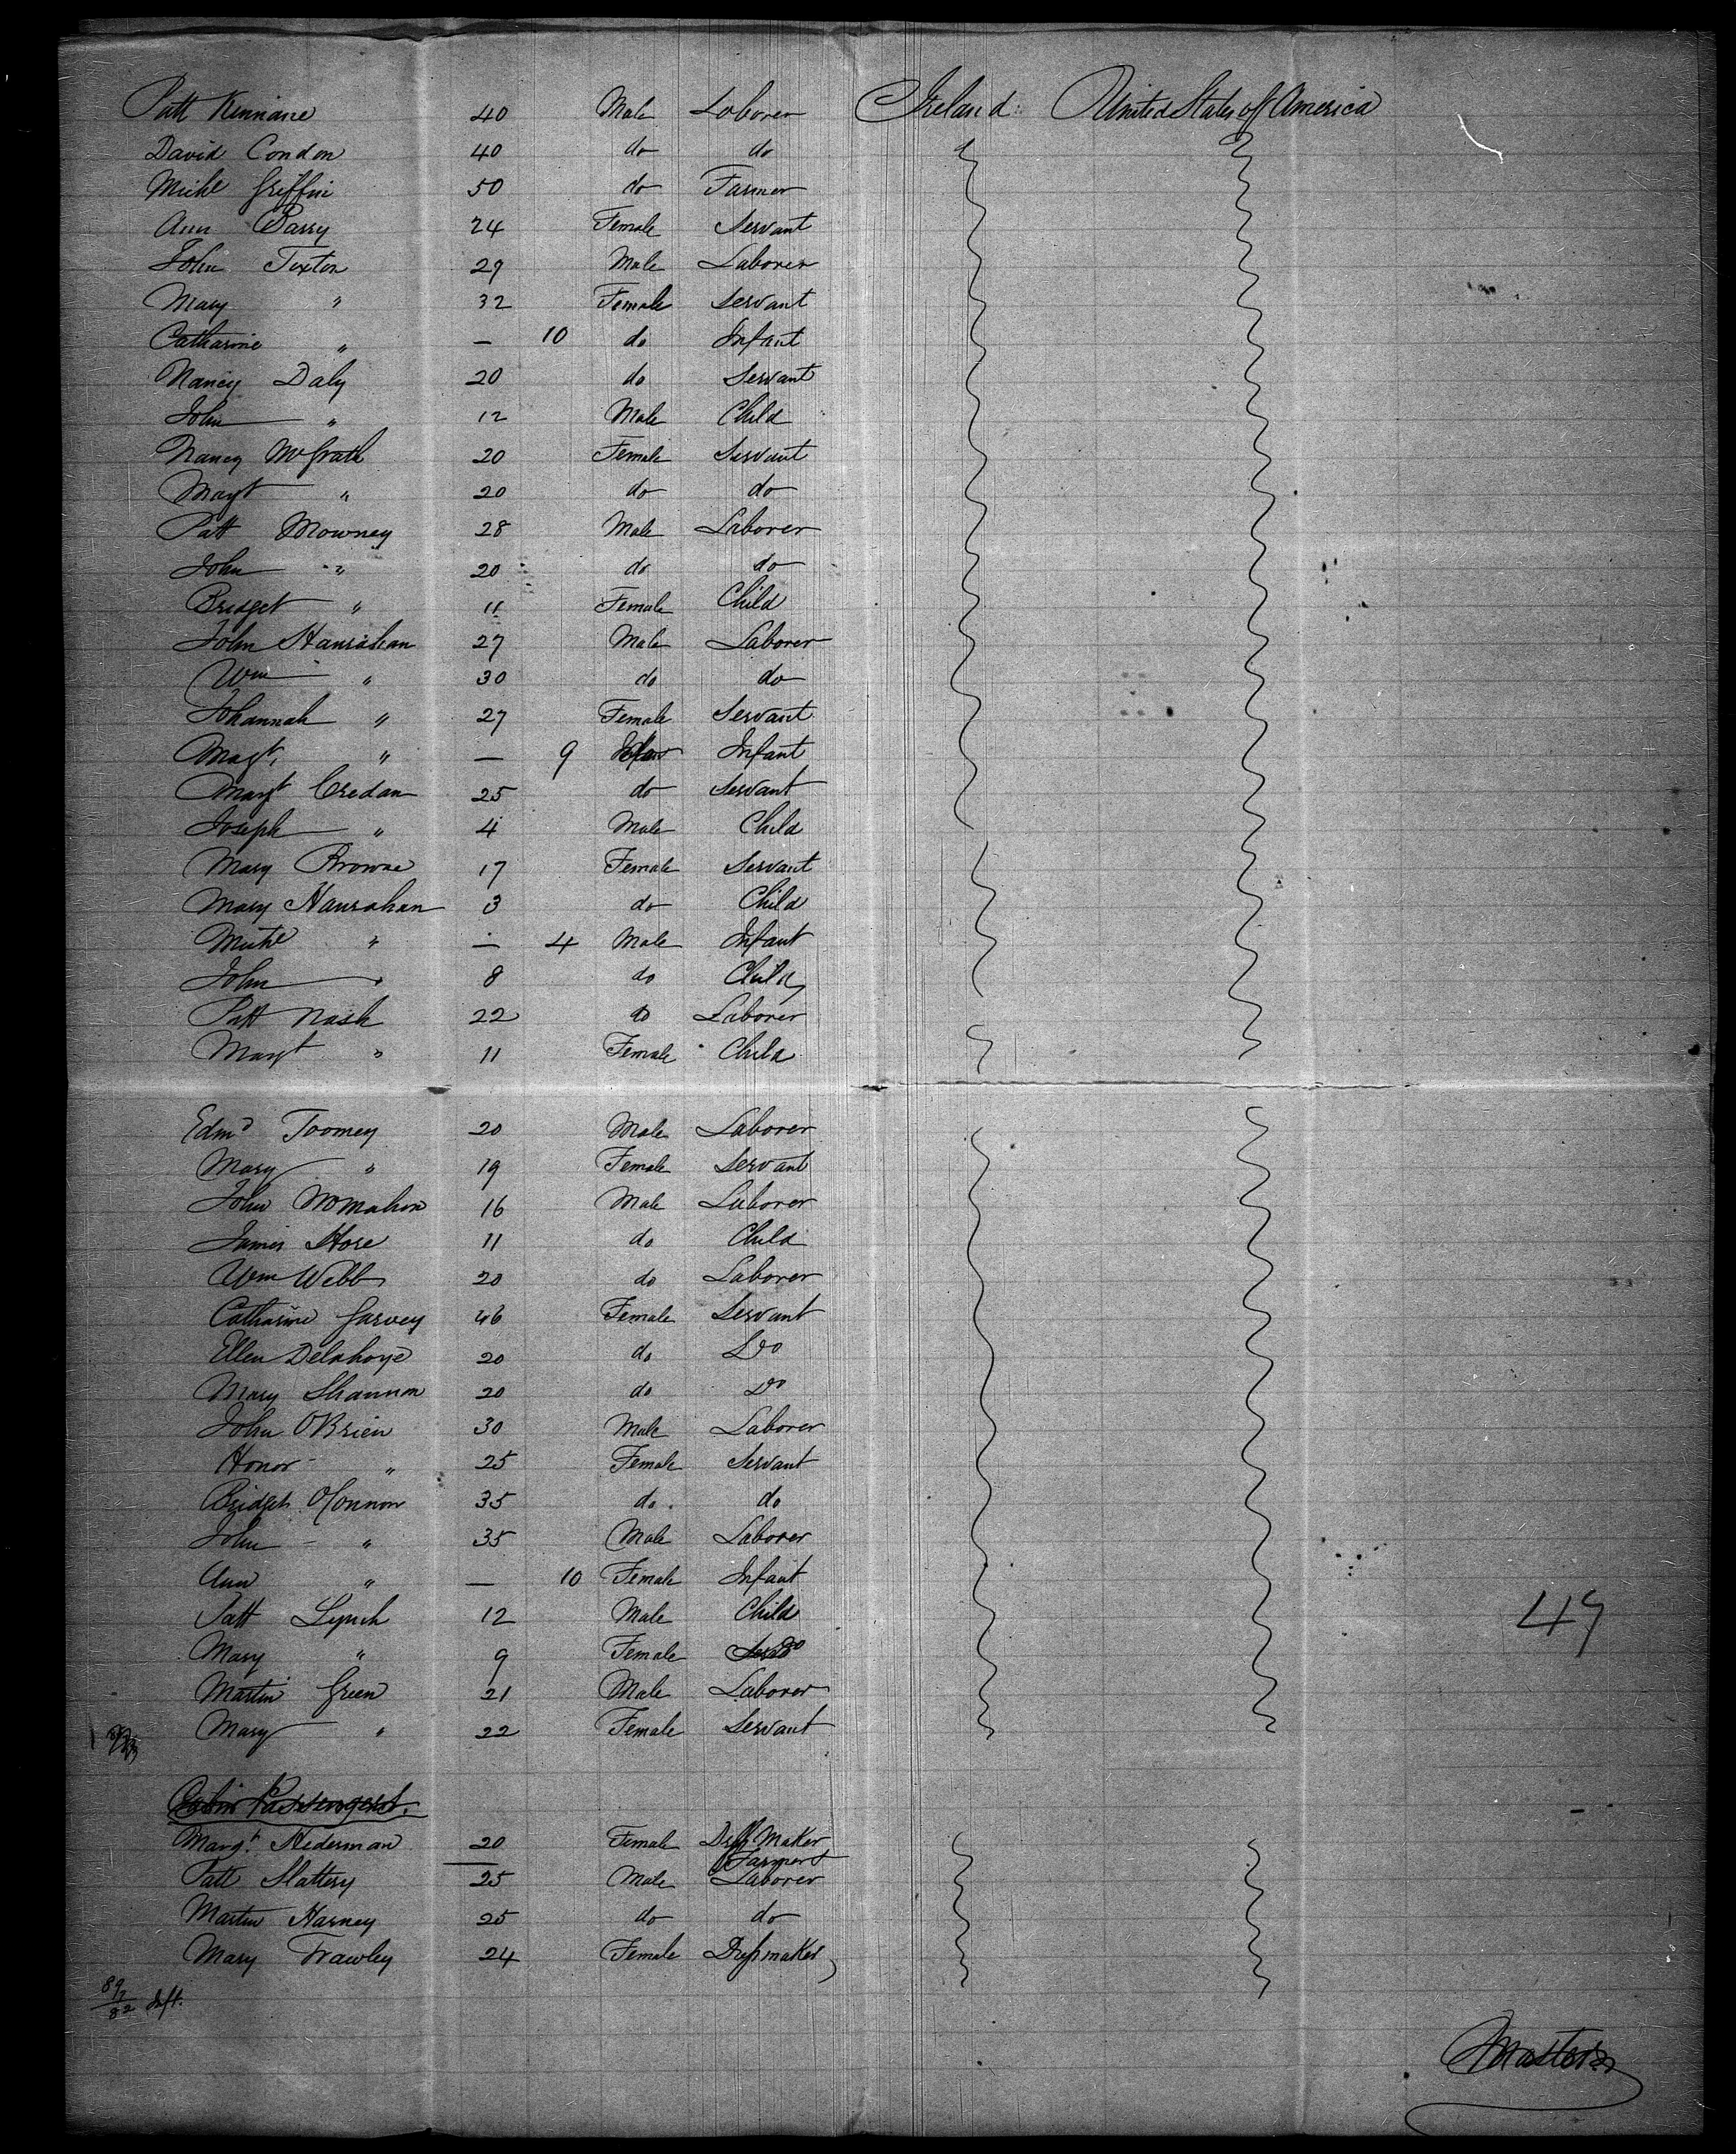 Patt Kinnane 40 Male Laborer Ireland United States of America
David Condon 40 do do
Michl Griffin 50 do Farmer
Ann Barry 24 Female Servant
John Texton 29 Male Laborer
Mary " 32 Female Servant
Catharine " — 10 do Infant
Nancy Daly 20 do Servant
John " 12 Male Child
Nancy McGrath 20 Female Servant
Magt " 20 do do
Patt Mowney 28 Male Laborer
John " 20 do do
Bridget " 11 Female Child
John Hanrahan 27 Male Laborer
Wm " 30 do do
Johannah " 27 Female Servant
Magt. " — 9 Infant
Margt Credan 25 do Servant
Joseph " 4 Male Child
Mary Browne 17 Female Servant
Mary Hanrahan 3 do Child
Michl " — 4 Male Infant
John " 8 do Child
Patt Nash 22 do Laborer
Margt " 11 Female Child
Edmd Toomey 20 Male Laborer
Mary " 19 Female Servant
John McMahon 16 Male Laborer
James Hore 11 do Child
Wm Webb 20 do Laborer
Catharine Garvey 46 Female Servant
Ellen Delahoye 20 do Do
Mary Shannon 20 do Do
John OBrien 30 Male Laborer
Honor " 25 Female Servant
Bridget OConnor 35 do do
John " 35 Male Laborer
Ann " — 10 Female Infant
Patt Lynch 12 Male Child
Mary " 9 Female Do
Martin Green 21 Male Laborer
Mary " 22 Female Servant
49
Cabin Passengers.
Margt. Hederman 20 Female Dress Maker
Farmer
Patt Slattery 25 Male Laborer
Martin Harney 25 do do
Mary Frawley 24 Female Dressmaker
89/82 Inft.
Master